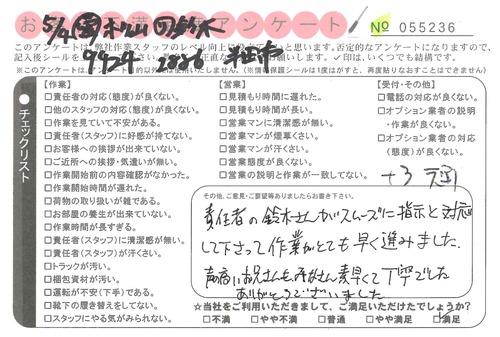 お 満 アンケート
№ 055236
5/4
9424
このアンケートは、弊社作業スタッフのレベル向上に
※このアンケートは、
チェックリスト
【作業】
□責任者の対応(態度)が良くない。
□他のスタッフの対応(態度)が良くない。
□作業を見ていて不安がある。
□責任者(スタッフ)に好感が持てない。
□お客様への挨拶が出来ていない。
□ご近所への挨拶・気遣いが無い。
□作業開始前の内容確認がなかった。
□作業開始時間が遅れた。
□荷物の取り扱いが雑である。
□お部屋の養生が出来ていない。
□作業時間が長すぎる。
□責任者(スタッフ)に清潔感が無い。
□責任者(スタッフ)が汗くさい。
□トラックが汚い。
□梱包資材が汚い。
□運転が不安(下手)である。
□靴下の履き替えをしてない。
□スタッフにやる気がみられない。
【営業】
□見積もり時間に遅れた。
□見積もり時間が長い。
□営業マンに清潔感が無い。
□営業マンが煙草くさい。
□営業マンが汗くさい。
□営業態度が良くない。
□営業の説明と作業が一致してない。
【受付・その他】
□電話の対応が良くない。
□オプション業者の説明
・作業が良くない。
□オプション業者の対応
(態度)が良くない。
その他、ご意見・ご要望等ありましたらお書き下さい。
責任者の鈴木さんがスムーズに指示と対応
して下さって作業がとても早く進みました。
背高いお兄さんも、みなさん素早くて丁寧でした
ありがとうございました
★当社をご利用いただきまして、ご満足いただけたでしょうか?
□不満 □やや不満 □普通 □やや満足 □満足